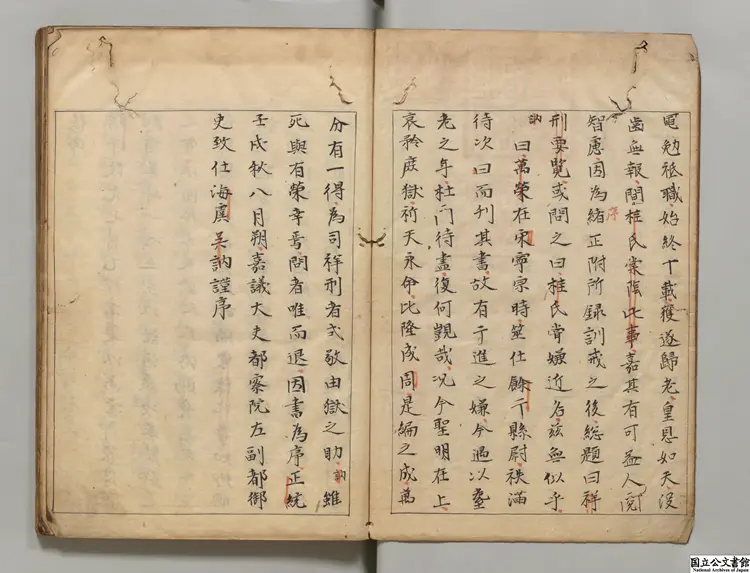 黽勉祗職始終十載獲遂歸老皇恩如天沒
齒無報間桂氏棠陰比事嘉其有可益人
序
智慮因為緒正附所錄訓戒之後總題曰祥
刑要覽或問之曰桂氏嘗嫌近名茲無似乎
訥曰萬榮在宋寧宗時筮仕餘干縣尉秩滿
待次曰而刋其書故有于進之嫌今過以耋
老之年杜門待盡復何覬哉況今聖明在上
哀矜庶獄祈天永命比隆成周是編之成萬
分有一得為司祥刑者式敬由獄之助訥雖
死與有榮幸焉問者唯而退因書為序正統
壬戌秋八月朔嘉議大夫都察院左副都御
史致仕海虞吳訥謹序
国立公文書館
National Archives of Japan